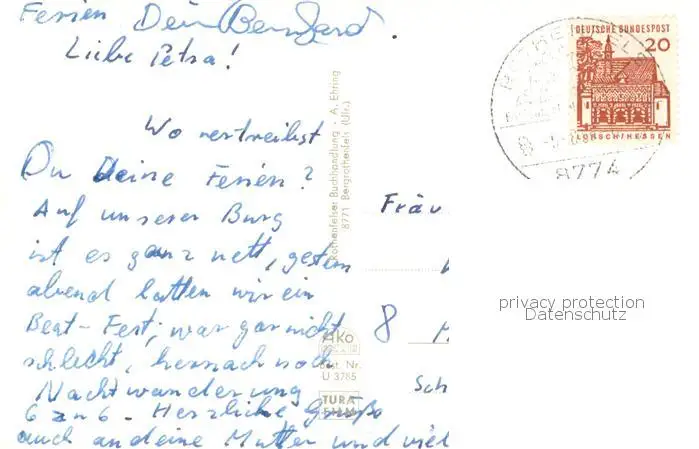 Ferien Dein Bernhard.
Liebe Petra!
Wo vertreibst
Du Deine Ferien?
Auf unserer Burg
ist es ganz nett, gestern
abend hatten wir ein
Beat-Fest; war gar nicht
schlecht, hernach noch
Nachtwanderung
6 zu 6. Herzliche Grüße
auch an deine Mutter und viel
Rothenfelser Buchhandlung · A. Ehring
8771 Bergrothenfels (Ufr.)
Ako
Best. Nr.
U 3785
TURA
FILM
Fräu
8
Sch
DEUTSCHE BUNDESPOST
20
LORSCH/HESSEN
8774
privacy protection
Datenschutz